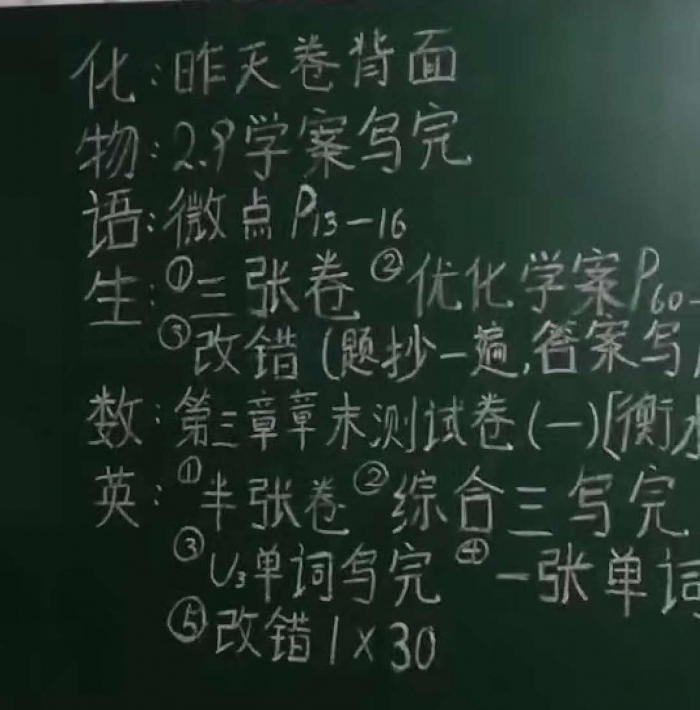 化:昨天卷背面
物:2.9学案写完
语:微点P13-16
生:①三张卷②优化学案P60-
③改错(题抄一遍,答案写
数:第三章章末测试卷(一)[衡水
英:①半张卷②综合三写完
③U3单词写完④一张单词
⑤改错1×30